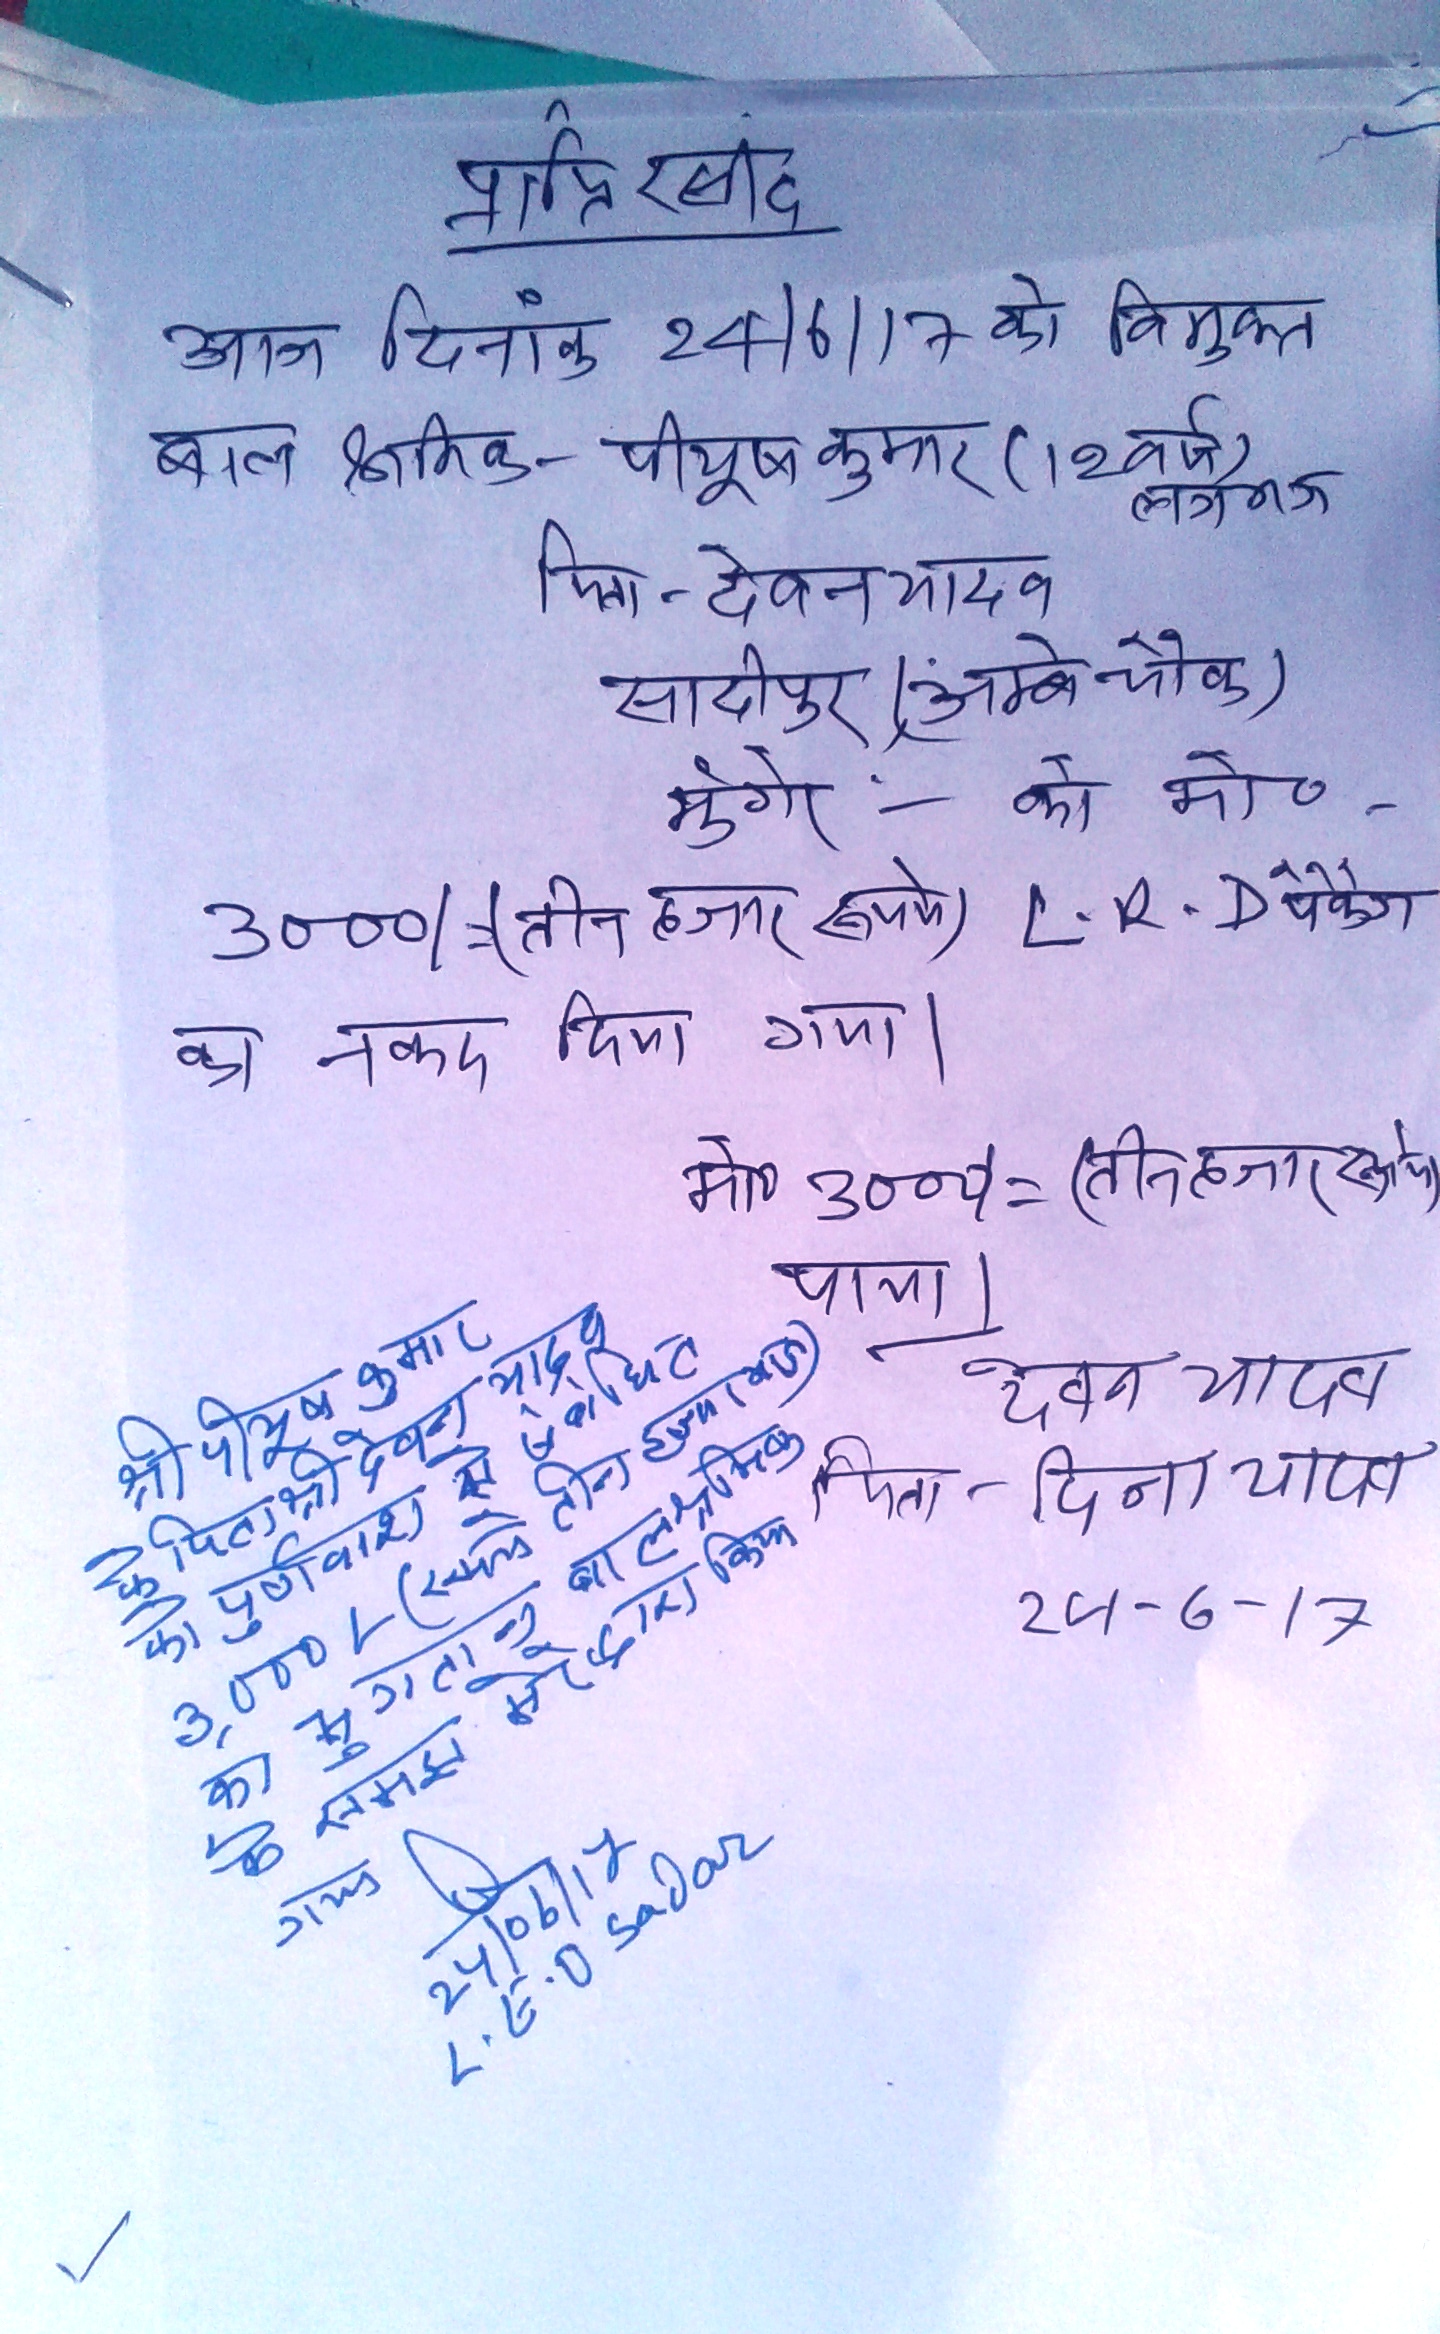 प्राप्ति रसीद
आज दिनांक 24/6/17 को विमुक्त
बाल श्रमिक - पीयूष कुमार (12 वर्ष)
लगभग
पिता - देवन यादव
सादीपुर (अम्बे चौक)
मुंगेर :- को मो० -
3000/= (तीन हजार रूपये) L.R.D पैकेज
का नकद दिया गया।
मो० 3000/= (तीन हजार रूपये)
पाया।
देवन यादव
पिता - दिना यादव
24-6-17
श्री पीयूष कुमार
के पिता श्री देवन यादव
को पुर्णवास से संबंधित
3,000/- (रूपये तीन हजार मात्र)
का भुगतान बाल श्रमिक
के समक्ष मेरे द्वारा किया
गया
24/06/17
L.E.O Sadar